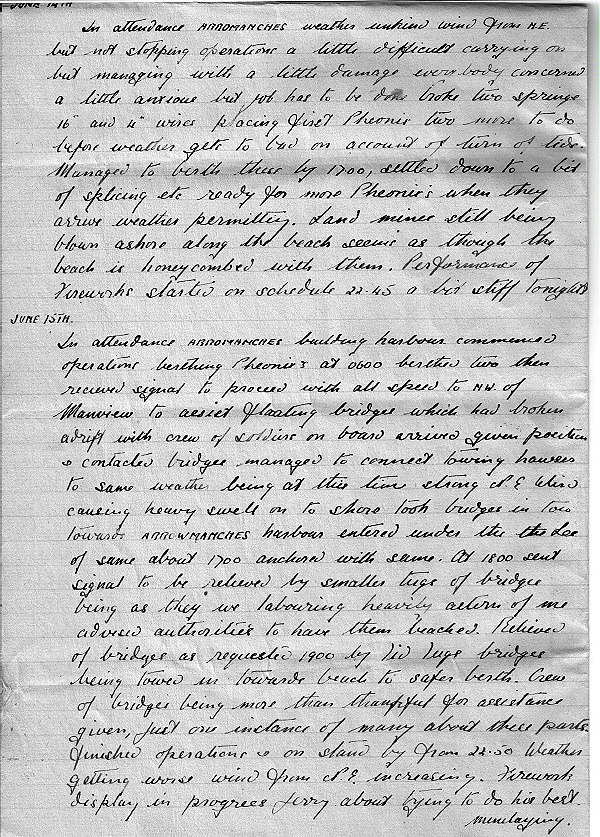 JUNE 14TH
In attendance ARROMANCHES weather unkind wind from N.E.
but not stopping operations a little difficult carrying on
but managing with a little damage everybody concerned
a little anxious but job has to be done broke two springs
16" and 4" wires placing first Pheonix two more to do
before weather gets to bad on account of turn of tide.
Managed to berth these by 1700, settled down to a bit
of splicing etc ready for more Pheonix's when they
arrive weather permitting. Land mines still being
blown ashore along the beach seems as though the
beach is honeycombed with them. Performance of
Fireworks started on schedule 22.45 a bit stiff tonight
JUNE 15TH.
In attendance ARROMANCHES building harbour commenced
operations berthing Pheonix's at 0600 berthed two then
recieved signal to proceed with all speed to NW. of
to assist floating bridges which had broken
adrift with crew of soldiers on board arrived given position
& contacted bridges managed to connect towing hawsers
to same weather being at this time strong N.E Wind
causing heavy swell on to shore took bridges in tow
towards ARROWMANCHES harbour entered under the the Lee
of same about 1700 anchored with same. At 1800 sent
signal to be releved by smaller tugs of bridges
being as they we labouring heavily astern of me
advised authorities to have them beached. Relieved
of bridges as requested 1900 by Tid Tugs bridges
being towed in towards beach to safer berth. Crew
of bridges being more than thankful for assistance
given, just one instance of many about these parts.
finished operations & on stand by from 22.30 Weather
getting worse wind from N.E. increasing. Firework
display in progress Jerry about trying to do his best.